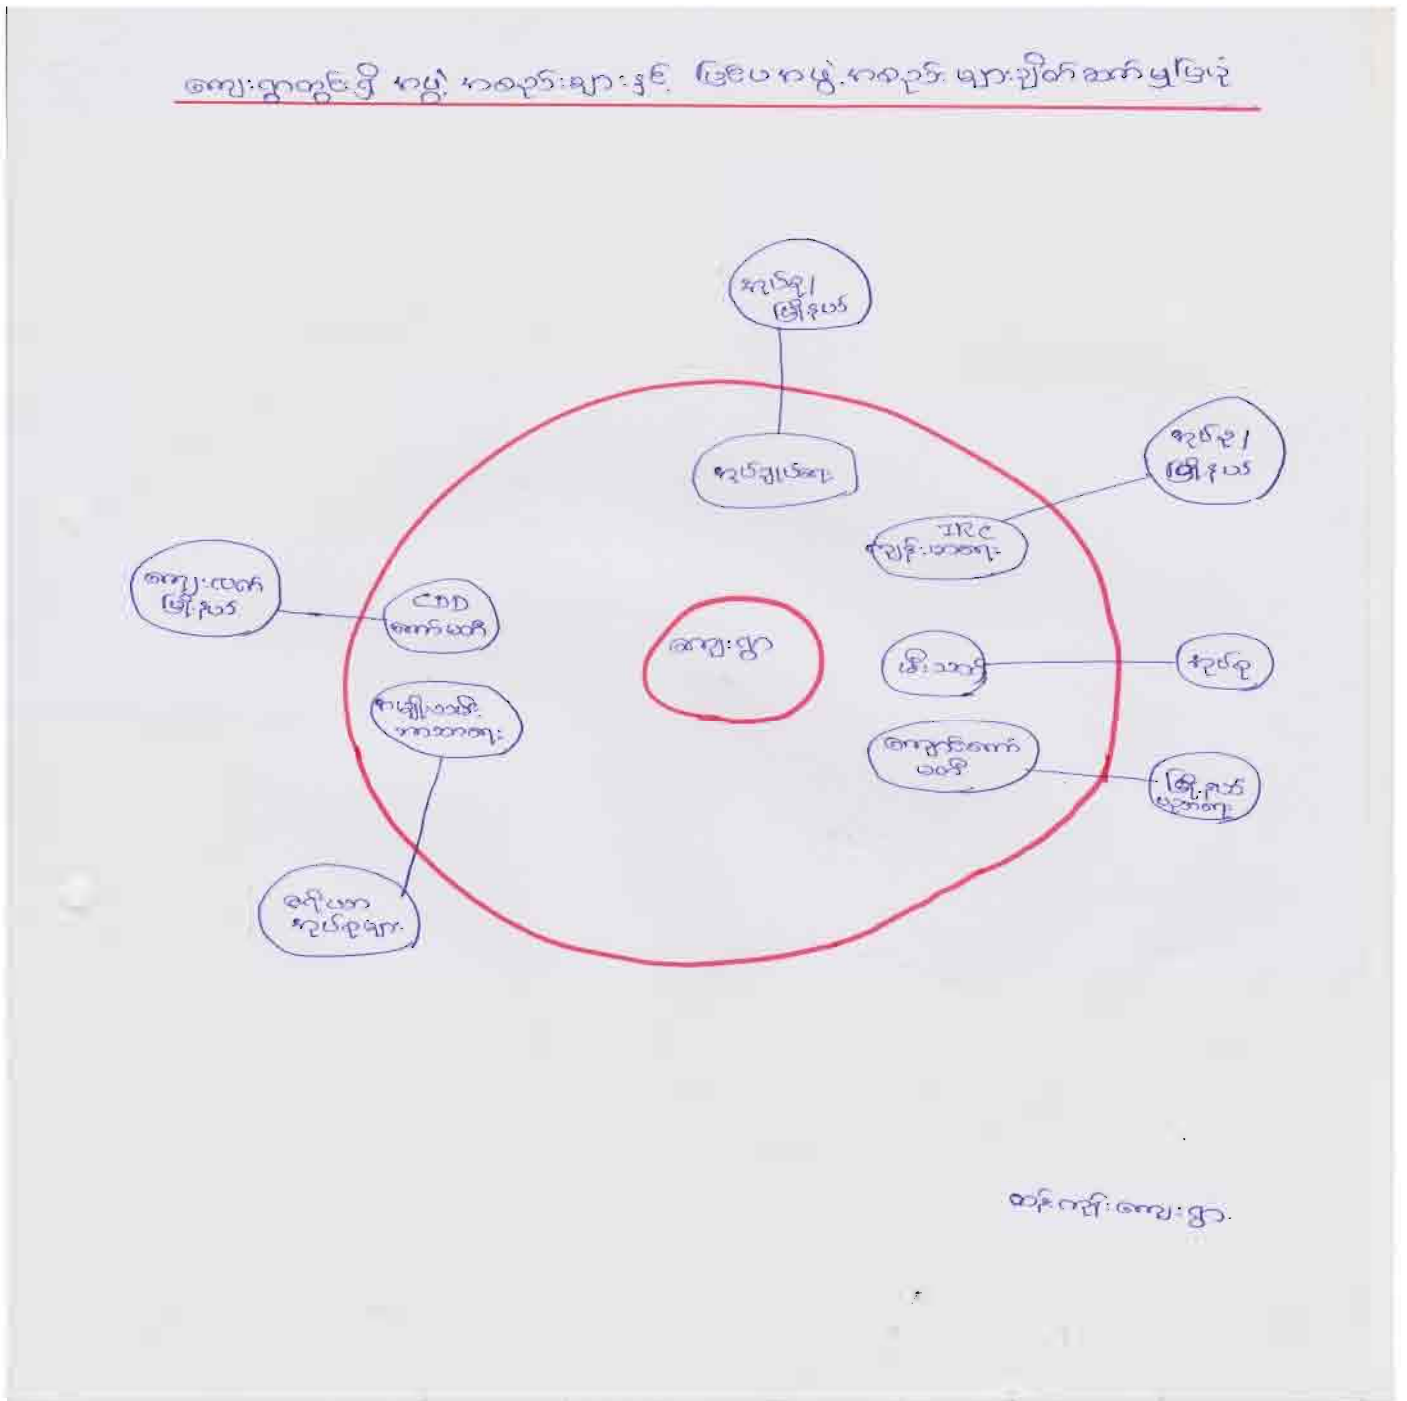 ကျေးရွာတွင်းရှိ အဖွဲ့ အစည်းများနှင့် ပြင်ပအဖွဲ့အစည်းများချိတ်ဆက်မှုပြပုံ
အုပ်စု/
မြို့နယ်
အုပ်ချုပ်ရေး
အုပ်စု/
မြို့နယ်
IRC
ကျန်းမာရေး
ကျေးလက်
မြို့နယ်
CDD
ကော်မတီ
ကျေးရွာ
မီးသတ်
အုပ်စု
အမျိုးသမီး
ဘာသာရေး
ကျောင်းကော်
မတီ
မြို့နယ်
ပညာရေး
ဧရိယာ
အုပ်စုများ
ကျေးရွာ